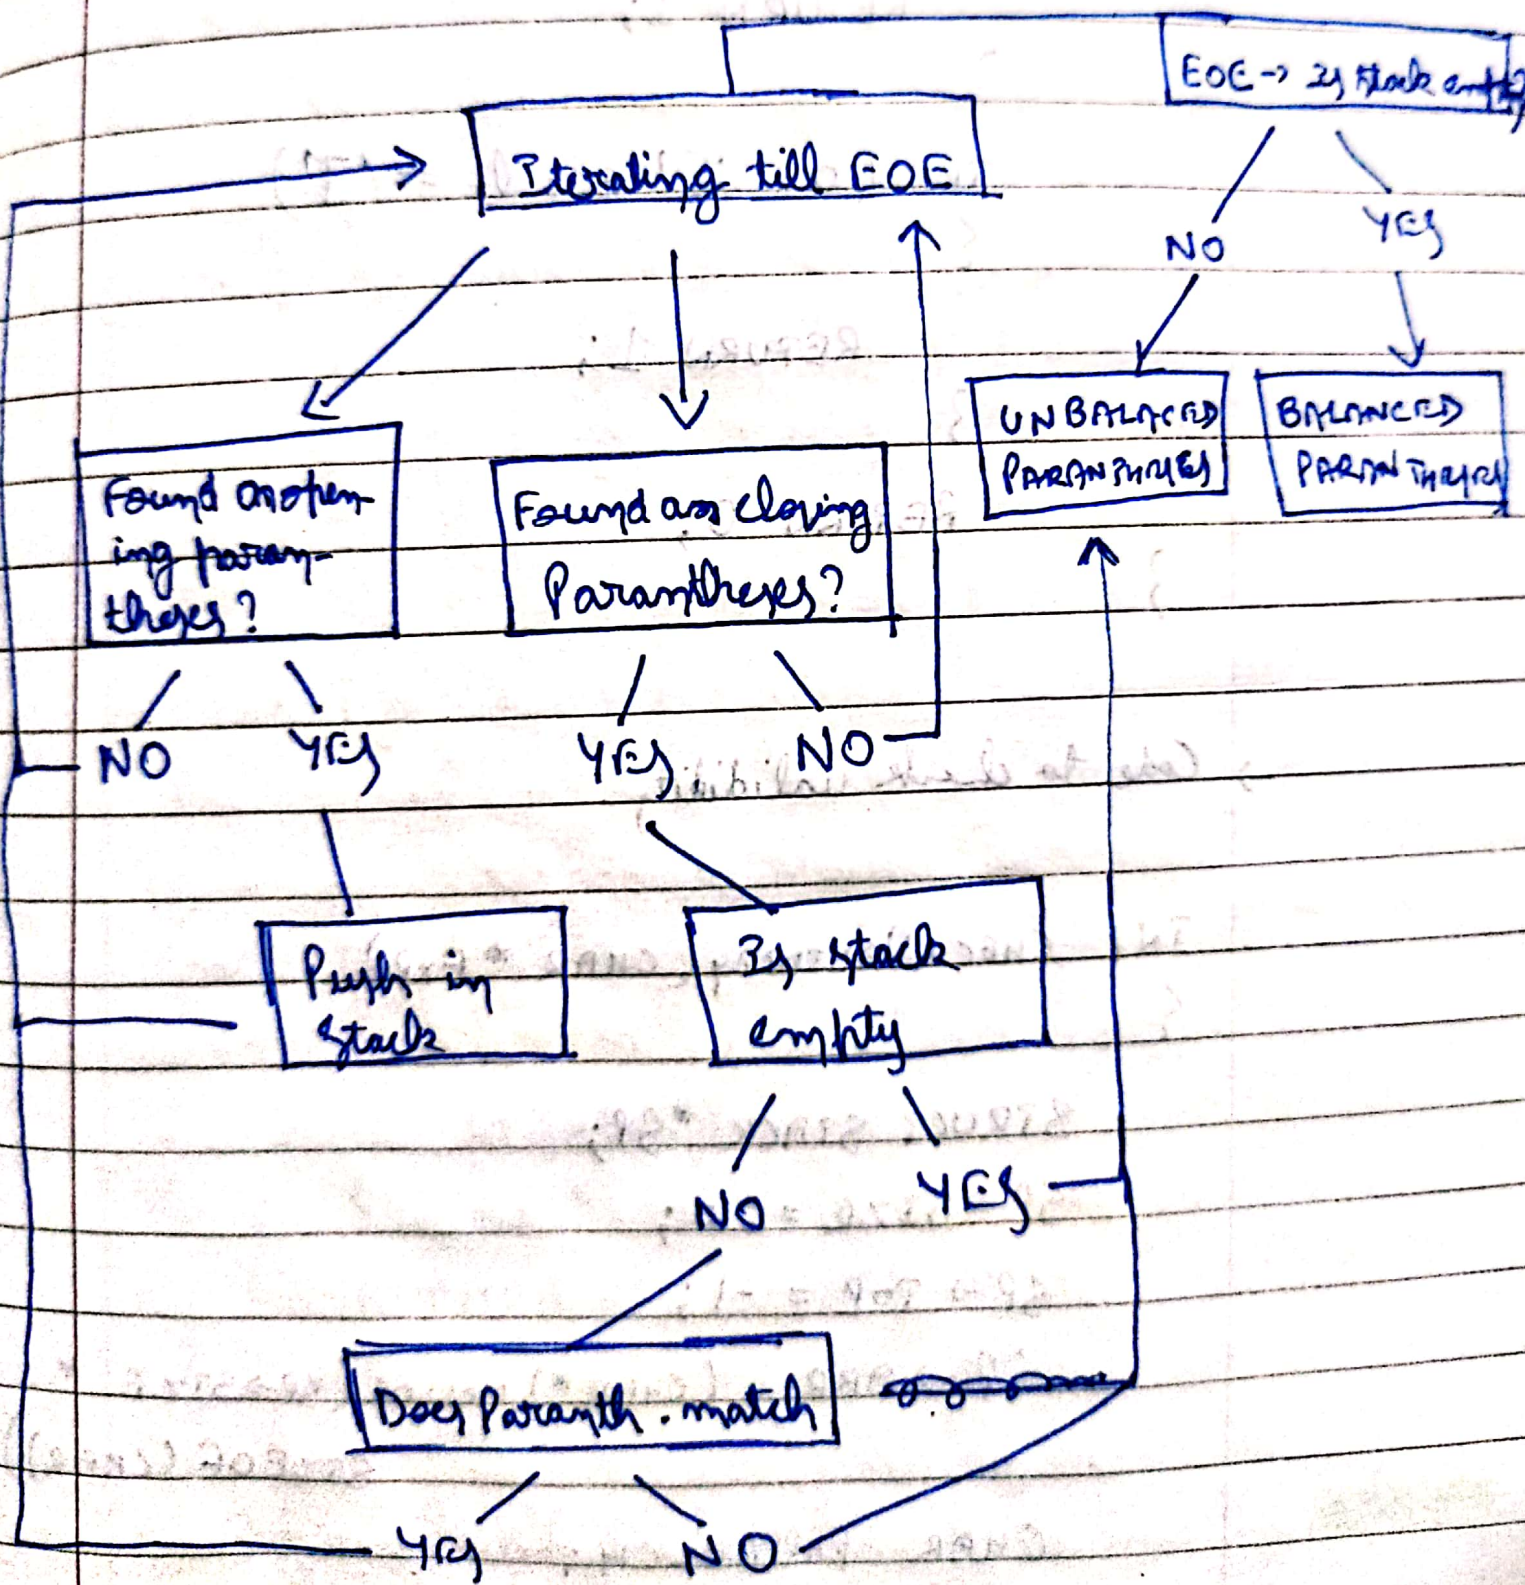 EOE → Is stack empty?
Iterating till EOE
NO
YES
UNBALACED
PARANTHESES
BALANCED
PARANTHESES
Found an open-
ing paran-
theses?
Found an closing
Parantheses?
NO
YES
YES
NO
Push in
stack
Is stack
empty
NO
YES
Does Paranth. match
YES
NO